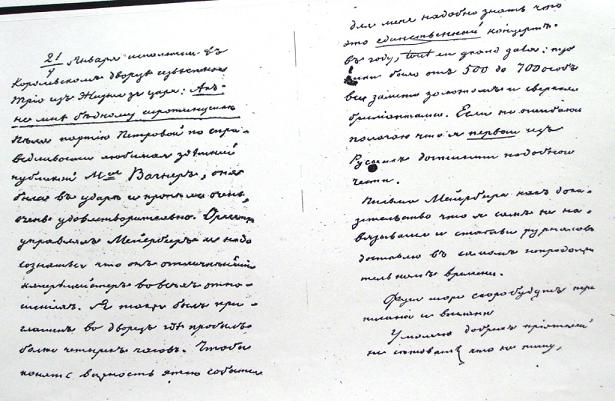 21/9 Января исполнили въ
Королевскомъ дворцѣ извѣстное
тріо изъ Жизни за царя: Ахъ
не мнѣ бѣдному сиротинушкѣ
Пѣла партію Петровой по спра-
ведливости любимая здѣшней
публикой М-me Вагнеръ, она
была въ ударѣ и пропѣла очень,
очень удовлетворительно. Оркестромъ
управлялъ Мейерберъ и надо
сознаться что онъ отличнѣйшій
капельмейстеръ во всѣхъ отно-
шеніяхъ. Я также былъ при-
глашенъ во дворецъ гдѣ пробылъ
болѣе четырехъ часовъ. Чтобы
понять важность этого событія
для меня надобно знать что
это единственный концертъ
въ году, tout en grand gala:
было отъ 500 до 700 особъ
все залито золотомъ и сверкало
брилліантами. Если не ошибаюсь
полагаю что я первый изъ
Русскихъ достигшій подобной
чести.
Письмо Мейербера какъ дока-
зательство что я самъ не на-
вязывался и статьи журналовъ
доставлю въ самомъ непродолжи-
тельномъ времени.
скоро будутъ пере-
писаны и высланы
Умоляю добрыхъ пріятелей
не сѣтовать, что не пишу,